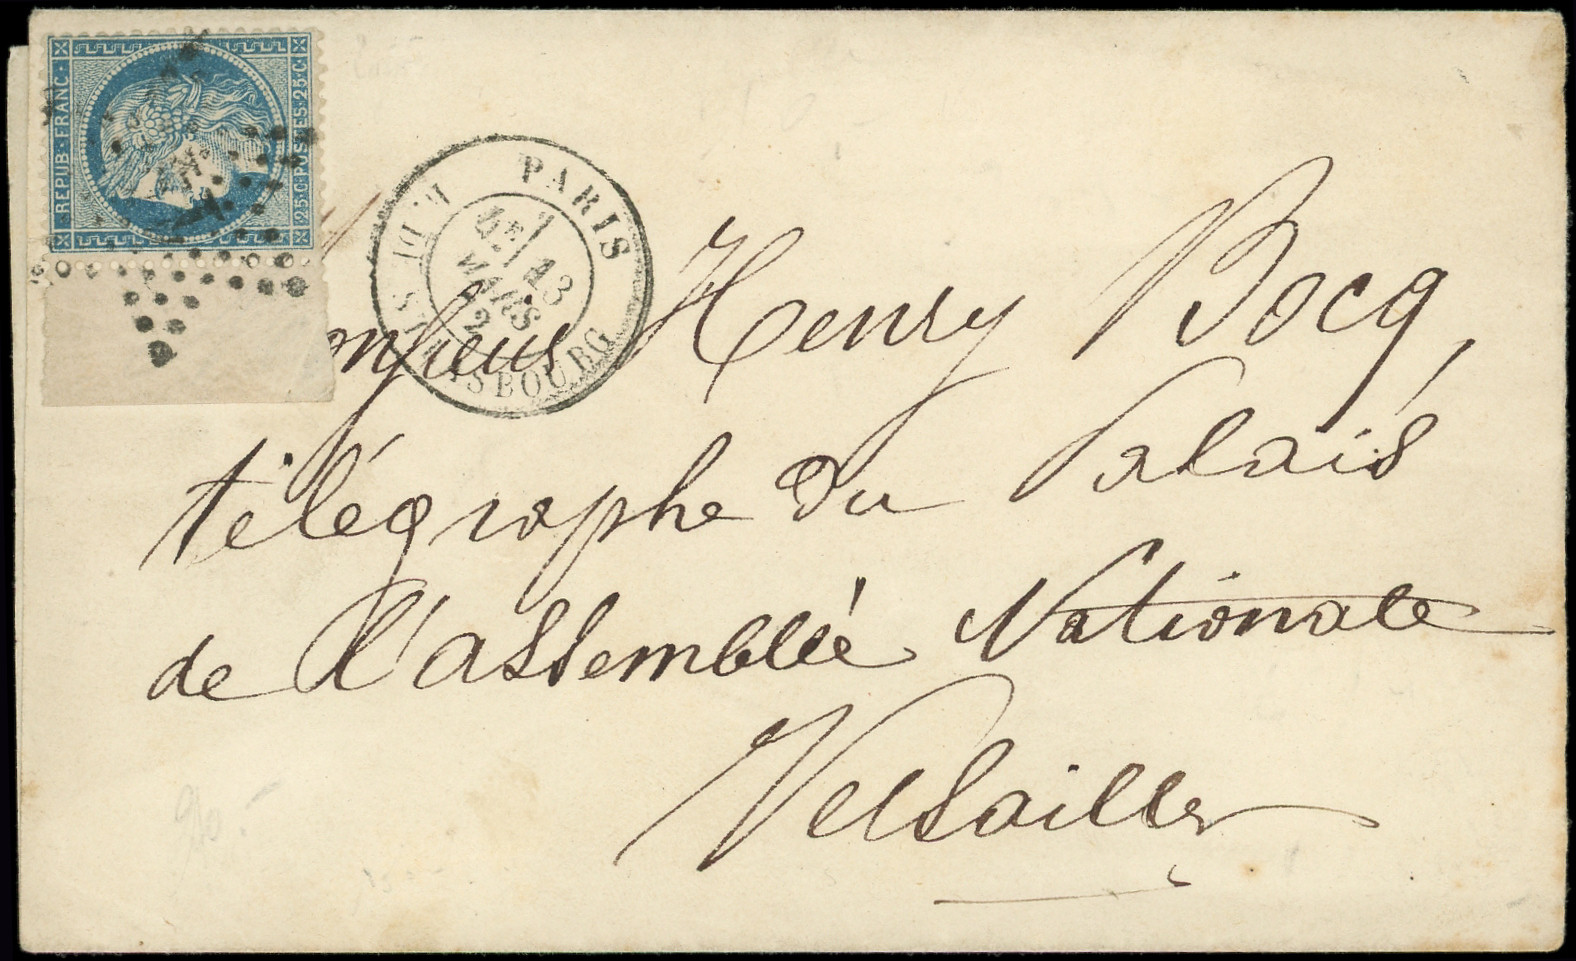 REPUB·FRANC·
25·C·POSTES·25·C·
PARIS
R.D STRASBOURG
4E
13
MARS
onsieur Henry Bocq,
télégraphe du Palais
de l'assemblée Nationale
Versailles